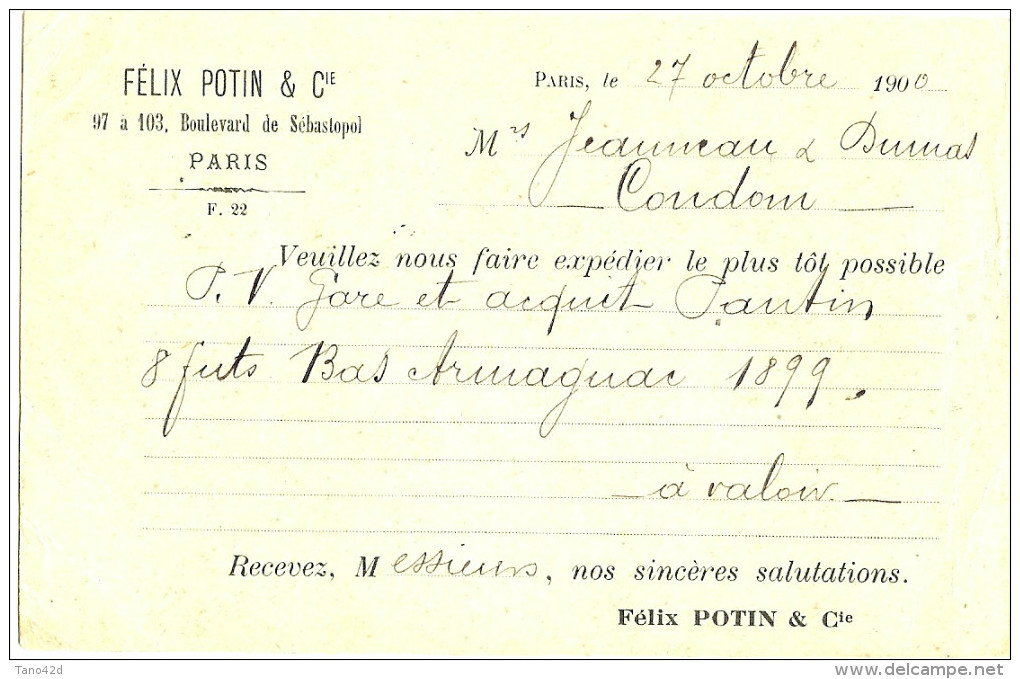 FÉLIX POTIN & Cie
97 à 103, Boulevard de Sébastopol
PARIS
F. 22
PARIS, le 27 octobre 1900
Mrs Jeanneau & Dumas
Condom
Veuillez nous faire expédier le plus tôt possible
P. V. Gare et acquit Pantin
8 futs Bas Armagnac 1899.
à valoir
Recevez, Messieurs, nos sincères salutations.
Félix POTIN & Cie
Tano42d
delcampe.net